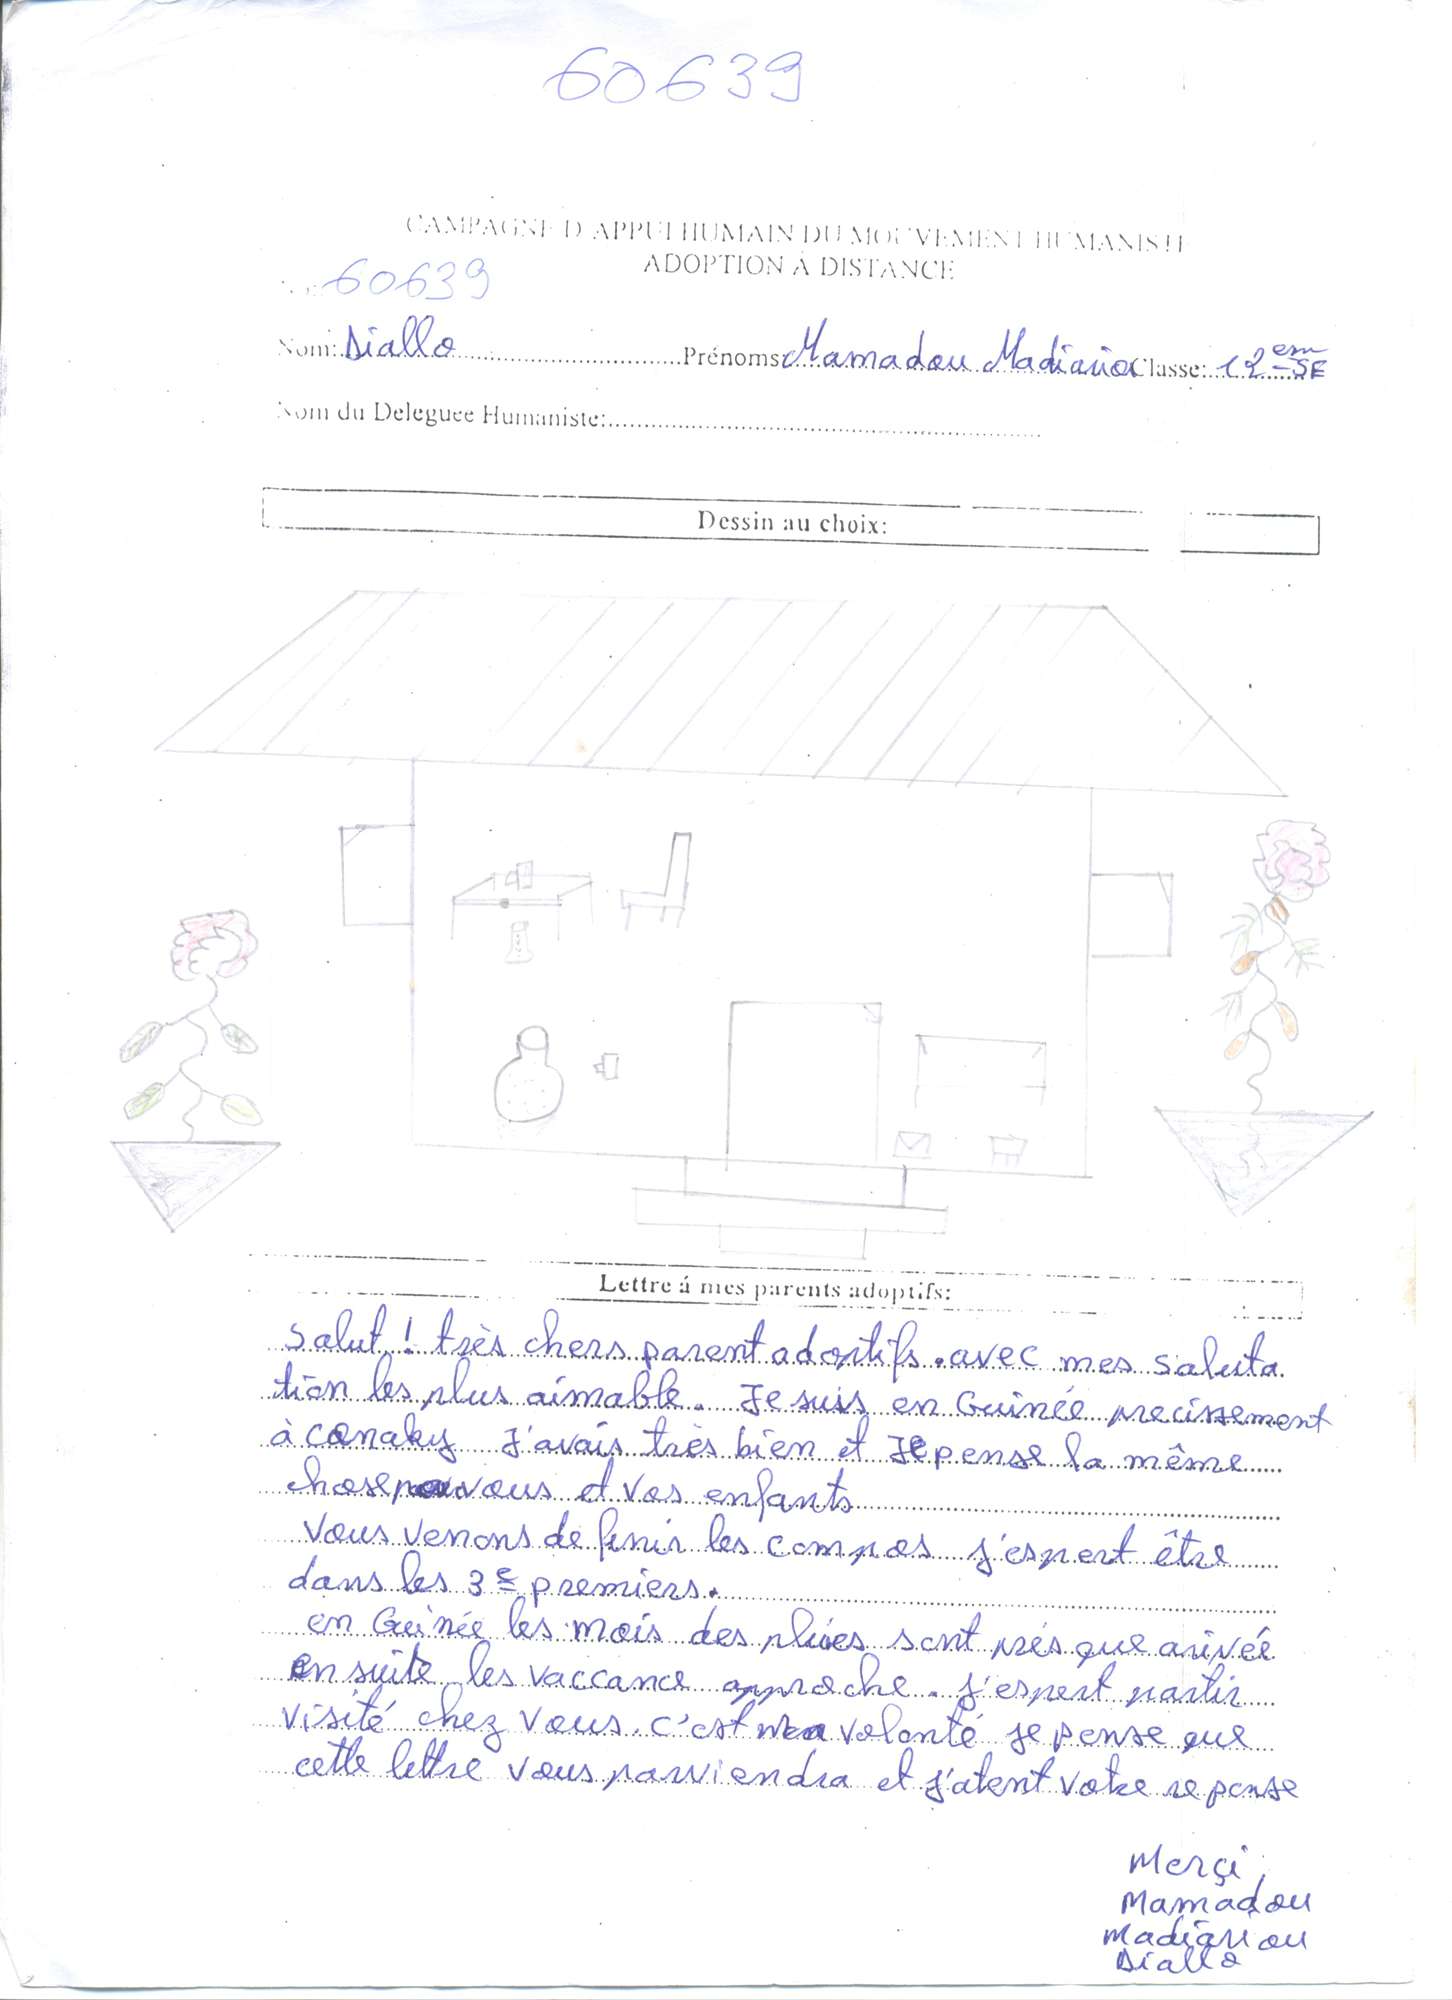 60639
CAMPAGNE D'APPUI HUMAIN DU MOUVEMENT HUMANISTE
ADOPTION À DISTANCE
60639
Nom: Diallo Prénoms: Mamadou Madiariou Classe: 12em SE
Nom du Deleguee Humaniste:
Dessin au choix:
Lettre á mes parents adoptifs:
Salut! très chers parent adoptifs. avec mes saluta
tion les plus aimable. Je suis en Guinée precissement
à conaky J'avais très bien et Je pense la même
chose pour vous et vos enfants
Vous venons de finir les compos j'espert être
dans les 3e premiers.
en Guinée les mois des pluies sont près que arivée
en suite les vaccance approche. j'espert partir
visité chez vous. c'est ma volonté je pense que
cette lettre vous parviendra et j'atent votre reponse
Merçi,
Mamadou
Madiariou
Diallo